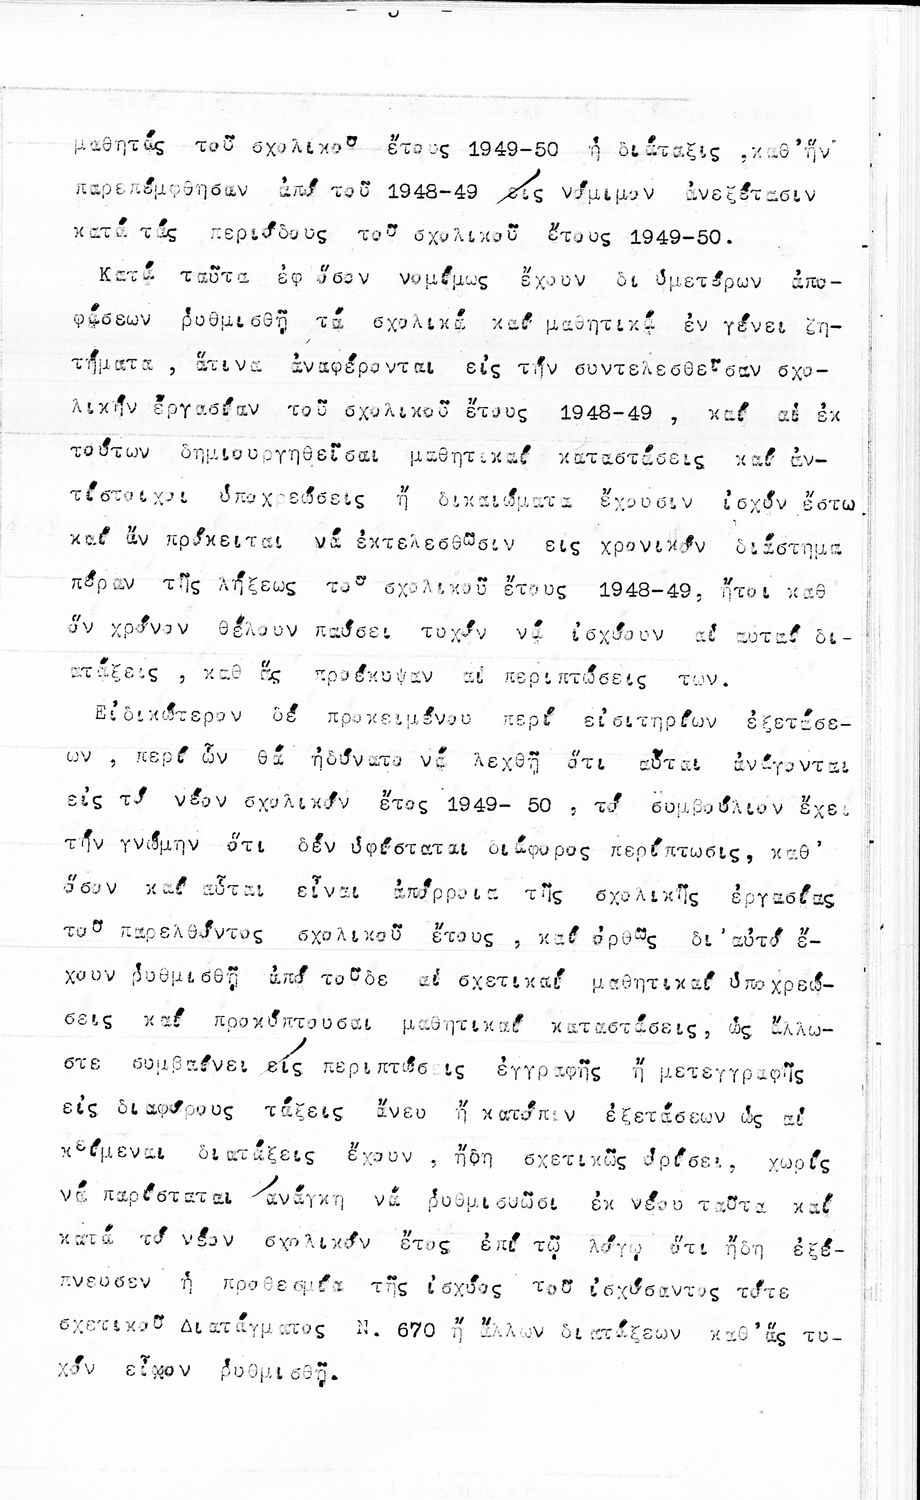 μαθητάς τοῦ σχολικοῦ ἔτους 1949-50 ἡ διάταξις ,καθ'ἥν
παρεπέμφθησαν ἀπό τοῦ 1948-49 εἰς νόμιμον ἀνεξέτασιν
κατά τάς περιόδους τοῦ σχολικοῦ ἔτους 1949-50.
Κατά ταῦτα ἐφ ὅσον νομίμως ἔχουν δι ὑμετέρων ἀπο-
φάσεων ῥυθμισθῇ τά σχολικά καί μαθητικά ἐν γένει ζη-
τήματα , ἅτινα ἀναφέρονται εἰς τήν συντελεσθεῖσαν σχο-
λικήν ἐργασίαν τοῦ σχολικοῦ ἔτους 1948-49 , καί αἱ ἐκ
τούτων δημιουργηθεῖσαι μαθητικαί καταστάσεις καί ἀν-
τίστοιχοι ὑποχρεώσεις ἤ δικαιώματα ἔχουσιν ἰσχύν ἔστω
καί ἄν πρόκειται νά ἐκτελεσθῶσιν εις χρονικόν διάστημα
πέραν τῆς λήξεως τοῦ σχολικοῦ ἔτους 1948-49, ἤτοι καθ
ὅν χρόνον θέλουν παύσει τυχόν νά ἰσχύουν αἱ αὐταί δι-
ατάξεις , καθ ἅς προέκυψαν αἱ περιπτώσεις των.
Εἰδικώτερον δέ προκειμένου περί εἰσιτηρίων ἐξετάσε-
ων , περί ὧν θά ἠδύνατο νά λεχθῇ ὅτι αὗται ἀνάγονται
εἰς τό νέον σχολικόν ἔτος 1949- 50 , τό συμβούλιον ἔχει
τήν γνώμην ὅτι δέν ὑφίσταται διάφορος περίπτωσις, καθ'
ὅσον καί αὗται εἶναι ἀπόρροια τῆς σχολικῆς ἐργασίας
τοῦ παρελθόντος σχολικοῦ ἔτους , καί ὀρθῶς δι'αὐτό ἔ-
χουν ῥυθμισθῇ ἀπό τοῦδε αἱ σχετικαί μαθητικαί ὑποχρεώ-
σεις καί προκύπτουσαι μαθητικαί καταστάσεις, ὡς ἄλλω-
στε συμβαίνει εἰς περιπτώσεις ἐγγραφῆς ἤ μετεγγραφῆς
εἰς διαφόρους τάξεις ἄνευ ἤ κατόπιν ἐξετάσεων ὡς αἱ
κείμεναι διατάξεις ἔχουν , ἤδη σχετικῶς ὁρίσει, χωρίς
νά παρίσταται ἀνάγκη νά ῥυθμισθῶσι ἐκ νέου ταῦτα καί
κατά τό νέον σχολικόν ἔτος ἐπί τῷ λόγῳ ὅτι ἤδη ἐξέ-
πνευσεν ἡ προθεσμία τῆς ἰσχύος τοῦ ἰσχύσαντος τότε
σχετικοῦ Διατάγματος Ν. 670 ἤ ἄλλων διατάξεων καθ'ἅς τυ-
χόν εἶχον ῥυθμισθῇ.